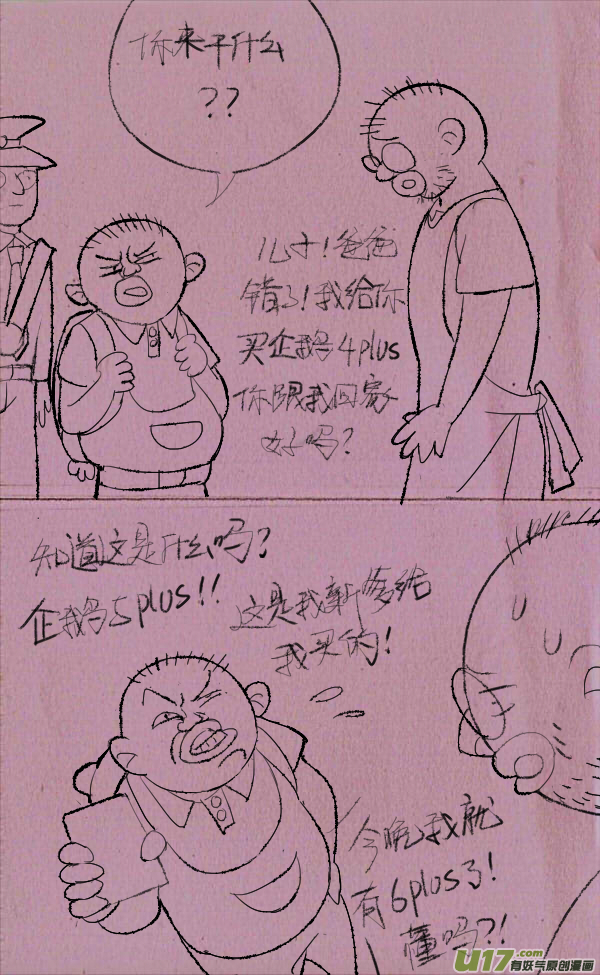 你来干什么
??
儿子!爸爸
错了!我给你
买企鹅4plus
你跟我回家
好吗?
知道这是什么吗?
企鹅5plus!!
这是我新爹给
我买的!
今晚我就
有6plus了!
懂吗?!
U17.com
有妖气原创漫画